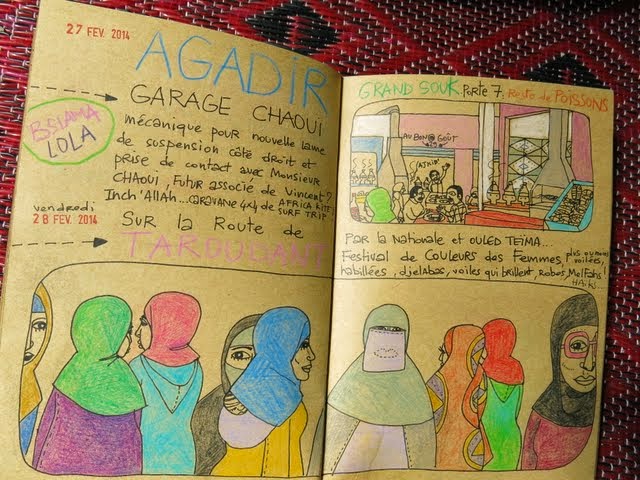 27 FEV. 2014
AGADIR
GARAGE CHAOUI
mécanique pour nouvelle lame
de suspension côté droit et
prise de contact avec Monsieur
CHAOUI, Futur associé de Vincent?
Inch'Allah... CARAVANE 4x4 de SURF TRIP!
AFRICA KITE
BSLAMA
LOLA
vendredi
28 FEV. 2014
SUR la Route de
TAROUDANT
GRAND SOUK. Porte 7. Resto de POISSONS
AU BON GOÛT
PAR la Nationale et OULED TEÏMA....
Festival de Couleurs des Femmes, plus ou moins
voilées,
habillées, djelabas, voiles qui brillent, Robes, MelFahs!